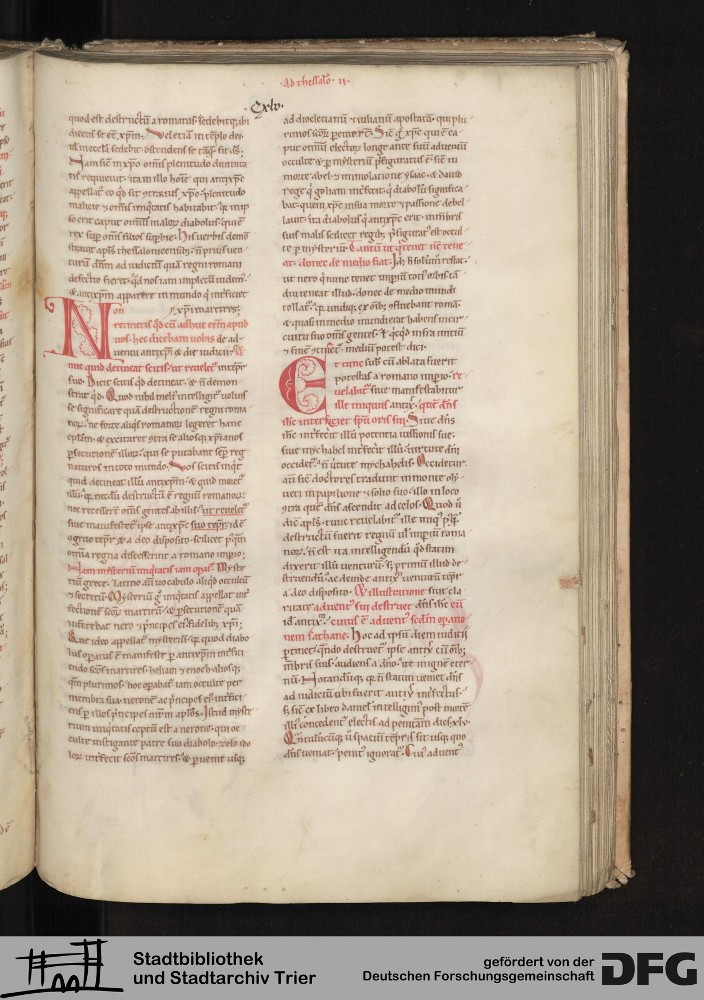 Ad thessalo. II.
Cxlv.
quod est destructū a romanis sedebitq; ibi
dicens se eē xp̄m. Vel etiā in tēplo dei.
id in eccl̄a sedebit ostendens se tāq̄ sit ds̄.
Nam sic̄ in xp̄o om̄is plenitudo diuinita
tis requieuit. ita in illo hoīe qui antixp̄c
appellat̄ eo qd̄ sit c̄trarius xp̄o. plenitudo
malicie & om̄is iniquitatis habitabit. q̄ in ip
so erit caput omniū malorū diabolus. qui ē
rex sup̄ om̄s filios supbie. His uerbis demō
strauit apl̄s thessalonicensib; n̄ prius uen
turū dn̄m ad iudiciū quā regni romani
defectio fieret. qd̄ nos iam impletū uidem̄.
& antixp̄m apparere in mundo q̄ int̄ficiet
xp̄i martires;
Non
retinetis qd̄ cū adhuc eēm apud
uos. hec dicebam uobis de ad
uentu antixp̄i & die iudicii. &
nunc quid detineat scitis. ut reuelet̄ in tēp̄r
suo. Dicit scitis qd̄ detineat. & n̄ demon
strat qd̄. Quod nihil meli' intelligit' uoluis
se significare quā destructionē regni roma
nor̄. ne forte aliq̄s romanor̄ legeret hanc
ep̄lam. & excitaret c̄tra se aliosq; xp̄ianos
p̄secutionē illor̄. qui se putabant semp̄ reg
naturos in toto mundo. Vos scitis inq̄t
quid detineat illū antixp̄m. & quid moret̄
illū. q̄ necdū destructū ē regnū romanor̄.
nec recesser̄t om̄s gentes ab illis. ut reuelet̄
siue manifestet̄ ipse antixp̄c suo tēpr̄. id ē
ogruo tēpr̄ & a deo disposito. scilicet p'qm̄
om̄ia regna discesserint a romano imp̄io;
Nam mysteriū iniq̄tatis iam opat̄. Myste
riū grece. latino aūt uocabulo aliq̄d occultū
& secretū. Mysteriū g̊ iniq̄tatis appellat int̄
fectionē scōr̄ martirū. & p̄secutionē quā
inferebat nero & p̄ncipes ei' fidelib; xp̄i;
Que ideo appellat̄ mysteriū. q̄ quod diabo
lus opatur' ē manifeste p̄ antixp̄m int̄fici
endo scōs martires. heliam & enoch. aliosq;
qm̄ plurimos. hoc opabat̄ iam occulte per
membra sua neronē ac p̄ncipes ei'. int̄fici
ens p̄ illos p̄ncipes nr̄m aplōs. Istud myste
rium iniquitatis ceptū est a nerone. qui oc
culte instigante patre suo diabolo. zelo ido
lor̄ int̄fecit scōs martires. & p̄uenit usq;
ad dioclecianū & iulianū apostatā. qui plu
rimos scōr̄ pemer̄t. Sic̄ g̊ xp̄c qui ē ca
put omniū electoȝ longe ante suū aduentū
occulte & p̄ mysteriū p̄figuratus ē. sic̄ in
morte abel & immolatione ysaac. & dauid
rege q̄ goliam int̄fecit. q̄ diabolū significa
bat. quem xp̄c in sua morte & passione debel
lauit. ita diabolus q̄ antixp̄c erit. in mēbris
suis malis scilicet regib; p̄figurat' est occul
te p̄ mysteriū. Tantū ut q̄ tenet nc̄ tene
at. donec de medio fiat. Id ē. H̄ solū restat.
ut nero q̄ nunc tenet imp̄iū toci' orbis tā
diu teneat illud. donec de medio mundi
tollat̄. q̄ undiq; ex om̄ib; c̄fluebant romā.
& quasi in medio mundi erat. habens in cir
cuitu suo om̄s gentes. & qcq̄d infra initiū
& finē c̄tinet̄. mediū potest dici.
Et tunc sub cū ablata fuerit
potestas a romano imp̄io. re
uelabit̄ siue manifestabitur
ille iniquus antix̄. quē dn̄s
ih̄c int̄ficiet spū oris sui. Siue dn̄s
ih̄c int̄fecit illū potentia iussionis sue.
siue mychahel int̄fecit illū. uirtute dn̄i
occidet̄. n̄ uirtute mychahelis. Occidetur
aūt sic̄ doctores tradunt. in monte oly
ueti. in papilione & solio suo. illo in loco
c̄tra quē dn̄s ascendit ad celos. Quod ū
dic̄ apl̄s. tunc reuelabit̄ ille iniq'. p'q̄
destructū fuerit regnū ul' imp̄iū roma
nor̄. n̄ est ita intelligendū qd̄ statim
dixerit illū uenturū. s; primū illud de
struendū. ac deinde antix̄ uenturū tēpr̄
a deo disposito. & illustratione siue cla
ritate aduent' sui destruet dn̄s ih̄c eū
id antix̄. cuius ē aduent' scdm̄ opatio
nem sathane. Hoc ad ipsū diem iudicii
p̄tinet. qndo destruet̄ ipse antix̄ cū om̄ib;
mēbris suis. audiens a dn̄o. ite in ignē eter
nū. Notandūq; q̄ n̄ statim ueniet dn̄s
ad iudiciū. ubi fuerit antix̄ int̄fectus.
s; sic̄ ex libro daniel' intelligim'. post mortē
illi' concedent̄ electis ad penitentiā dies xlv.
Quantulūcūq; ū spaciū tēpr̄is sit usq; quo
dn̄s ueniat. penit' ignorat̄. Cui' aduent'
Stadtbibliothek
und Stadtarchiv Trier
gefördert von der
Deutschen Forschungsgemeinschaft
DFG